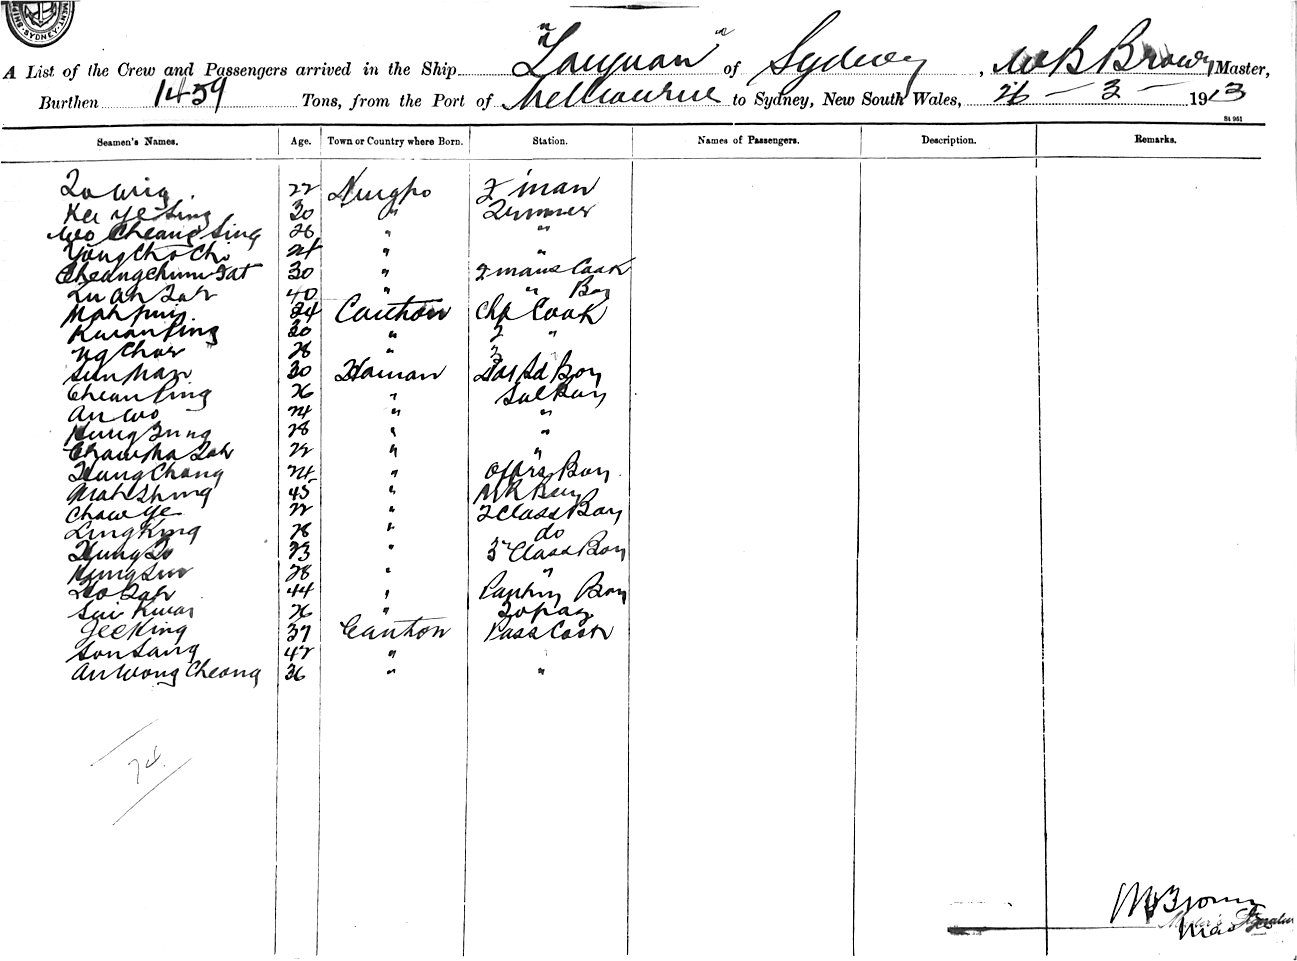 SYDNEY
A List of the Crew and Passengers arrived in the Ship "Taiyuan" of Sydney, W B Brown Master,
Burthen 1459 Tons, from the Port of Melbourne to Sydney, New South Wales, 26 - 2 - 1913
St 961
Seamen's Names. Age. Town or Country where Born. Station. Names of Passengers. Description. Remarks.
22 Ningpo F'man
30 " Trimmer
Wo Cheang Sing 26 " "
Yong Cho Chi 24 " "
Cheang Chun Fat 30 " F'mans Cook
40 " " Boy
34 Canton Chf Cook
Kwan Ping 30 " 2 "
Ng Chow 28 " 3
Sun Man 30 Hainan Boy
Chean Ping 26 " Sal Boy
Ah Wo 24 " "
28 " "
22 " "
Hung Chong 24 " Offrs Boy
45 " M R Boy
Chow Ye 22 " 2 Class Boy
Ling King 28 " do
23 " 3rd Class Boy
28 " "
44 " Pantry Boy
Sui Kwai 26 " Topaz
Gee King 37 Canton Pass Cook
Son Sang 42 "
Ah Wong Cheong 36 " "
W B Brown
Master